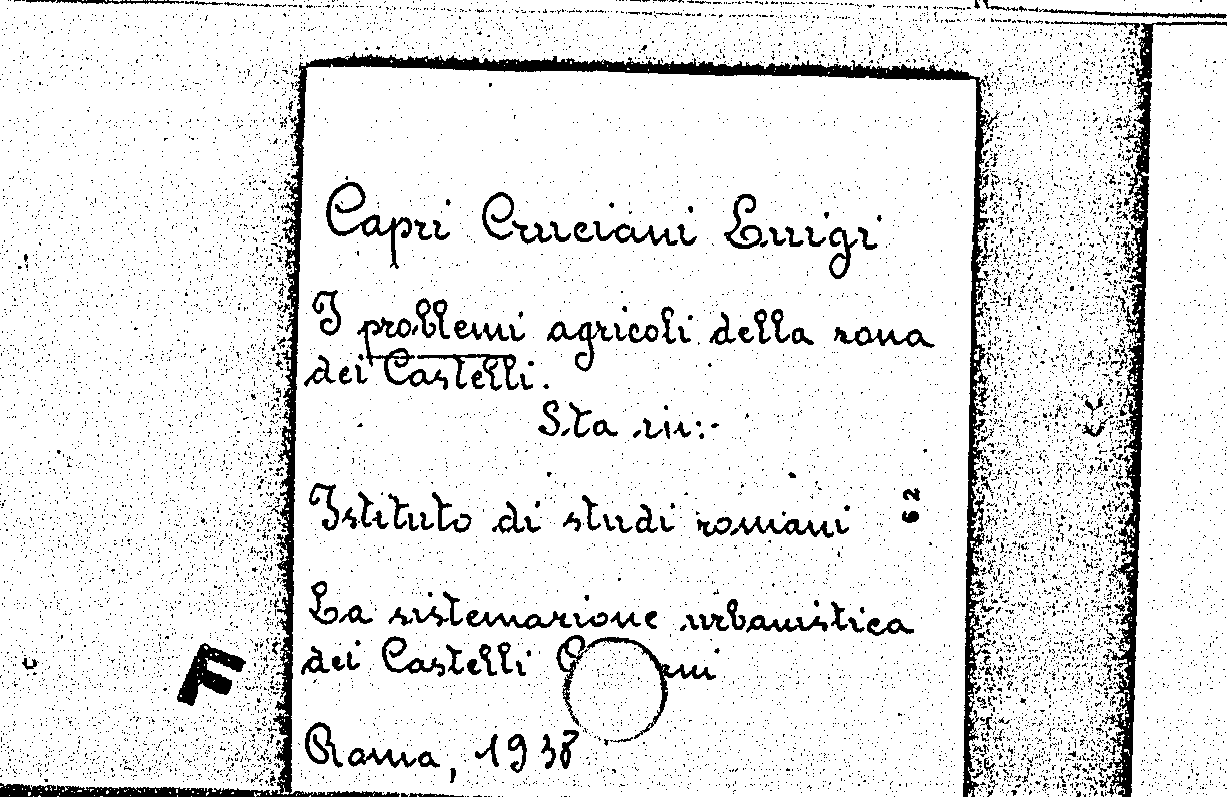 Capri Cruciani Luigi
I problemi agricoli della zona
dei Castelli.
Sta in:-
Istituto di studi romani
62
La sistemazione urbanistica
dei Castelli
Roma, 1938
F